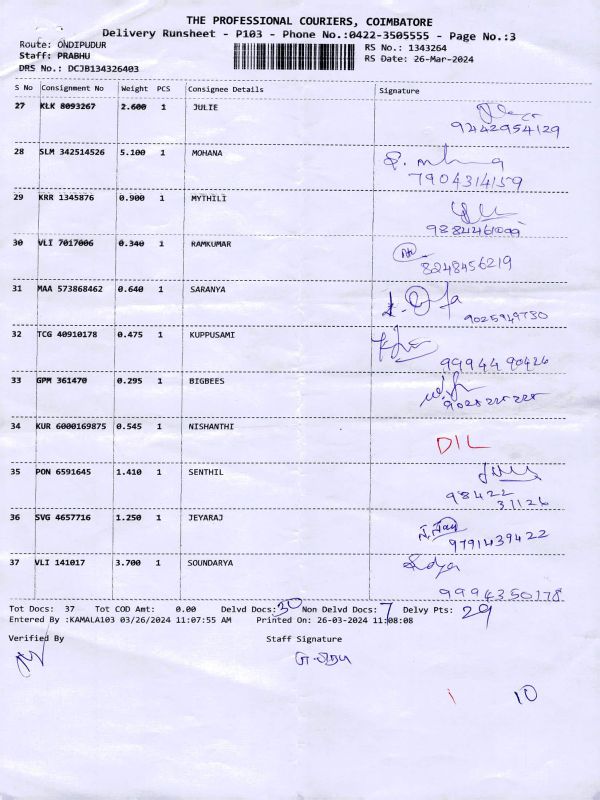 THE PROFESSIONAL COURIERS, COIMBATORE
Delivery Runsheet - P103 - Phone No.:0422-3505555 - Page No.:3
Route: ONDIPUDUR
RS No.: 1343264
Staff: PRABHU
RS Date: 26-Mar-2024
DRS No.: DCJB134326403
S No Consignment No Weight PCS Consignee Details Signature
27 KLK 8093267 2.600 1 JULIE
9442954129
28 SLM 342514526 5.100 1 MOHANA
7904314159
29 KRR 1345876 0.900 1 MYTHILI
30 VLI 7017006 0.340 1 RAMKUMAR
8248456219
31 MAA 573868462 0.640 1 SARANYA
9025949730
32 TCG 40910178 0.475 1 KUPPUSAMI
9994490426
33 GPM 361470 0.295 1 BIGBEES
34 KUR 6000169875 0.545 1 NISHANTHI
DIL
35 PON 6591645 1.410 1 SENTHIL
98422
31126
36 SVG 4657716 1.250 1 JEYARAJ
9791439422
37 VLI 141017 3.700 1 SOUNDARYA
9994350178
Tot Docs: 37 Tot COD Amt: 0.00 Delvd Docs: 30 Non Delvd Docs: 7 Delvy Pts: 29
Entered By :KAMALA103 03/26/2024 11:07:55 AM Printed On: 26-03-2024 11:08:08
Verified By Staff Signature
10